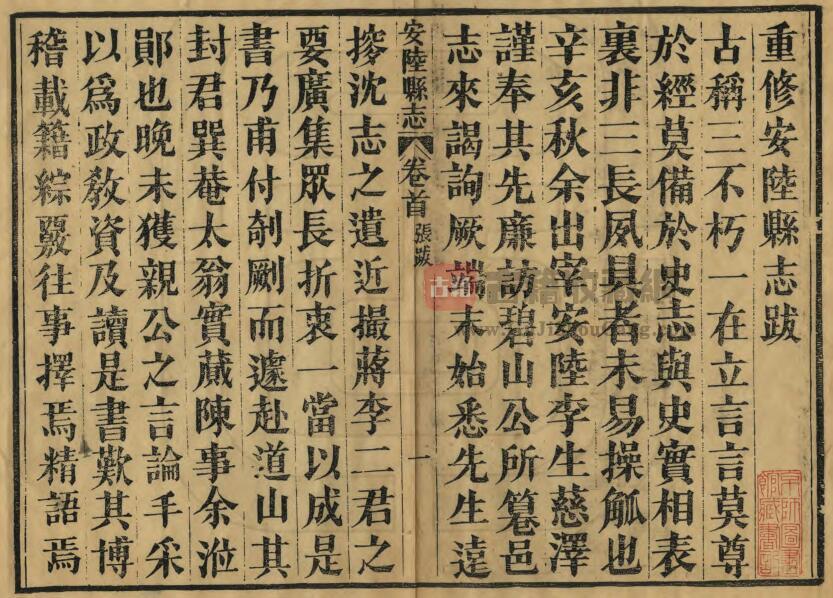 重修安陸縣志跋
古稱三不朽一在立言言莫尊
於經莫備於史志與史實相表
裏非三長夙具者未易操觚也
辛亥秋余出宰安陸李生慈澤
謹奉其先廉訪碧山公所篹邑
志來謁詢厥端末始悉先生遠
安陸縣志
卷首
張跋
一
搜沈志之遺近撮蔣李二君之
要廣集眾長折衷一當以成是
書乃甫付剞劂而遽赴道山其
封君巽菴太翁實蕆陳事余涖
鄖也晚未獲親公之言論手采
以爲政敎資及讀是書歎其博
稽載籍綜覈往事擇焉精語焉